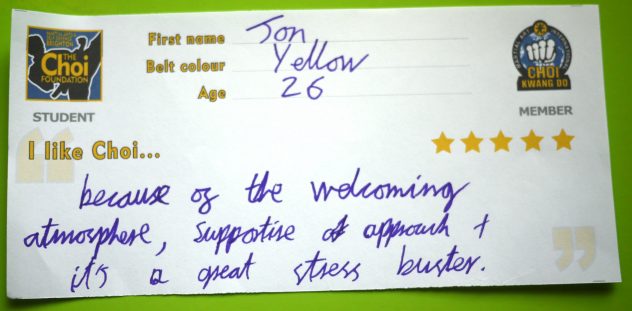 First name Jon
Belt colour Yellow
Age 26
THE
Choi
FOUNDATION
CHOI
KWANG DO
STUDENT
MEMBER
I like Choi...
because of the welcoming
atmosphere, supportive approach +
it's a great stress buster.